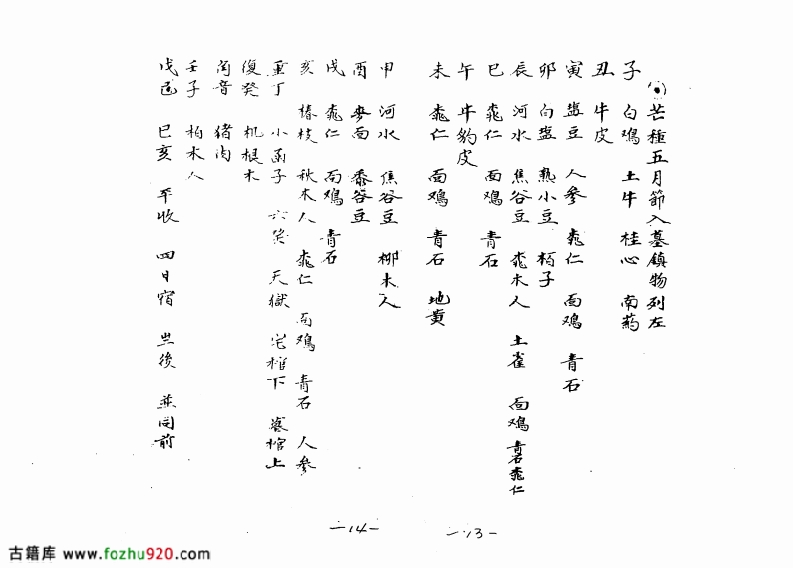 芒種五月節入墓鎮物列左
子 白鸡 土牛 桂心 南药
丑 牛皮
寅 盐豆 人參 桃仁 面鸡 青石
卯 白盐 熟小豆 栢子
辰 河水 焦谷豆 桃木人 土雀 面鸡 青石 桃仁
巳 桃仁 面鸡 青石
午 牛豹皮
未 桃仁 面鸡 青石 地黄
—13—
甲 河水 焦谷豆 柳木人
酉 麥面 黍谷豆
戌 桃仁 面鸡 青石
亥 椿枝 秋木人 桃仁 面鸡 青石 人參
重丁 小函子 六 天獄 宅棺下 墓棺上
復癸 机根木
商音 猪肉
壬子 柏木人
戊 巳亥 平收 四日宿 後 並同前
—14—
古籍库 www.fozhu920.com